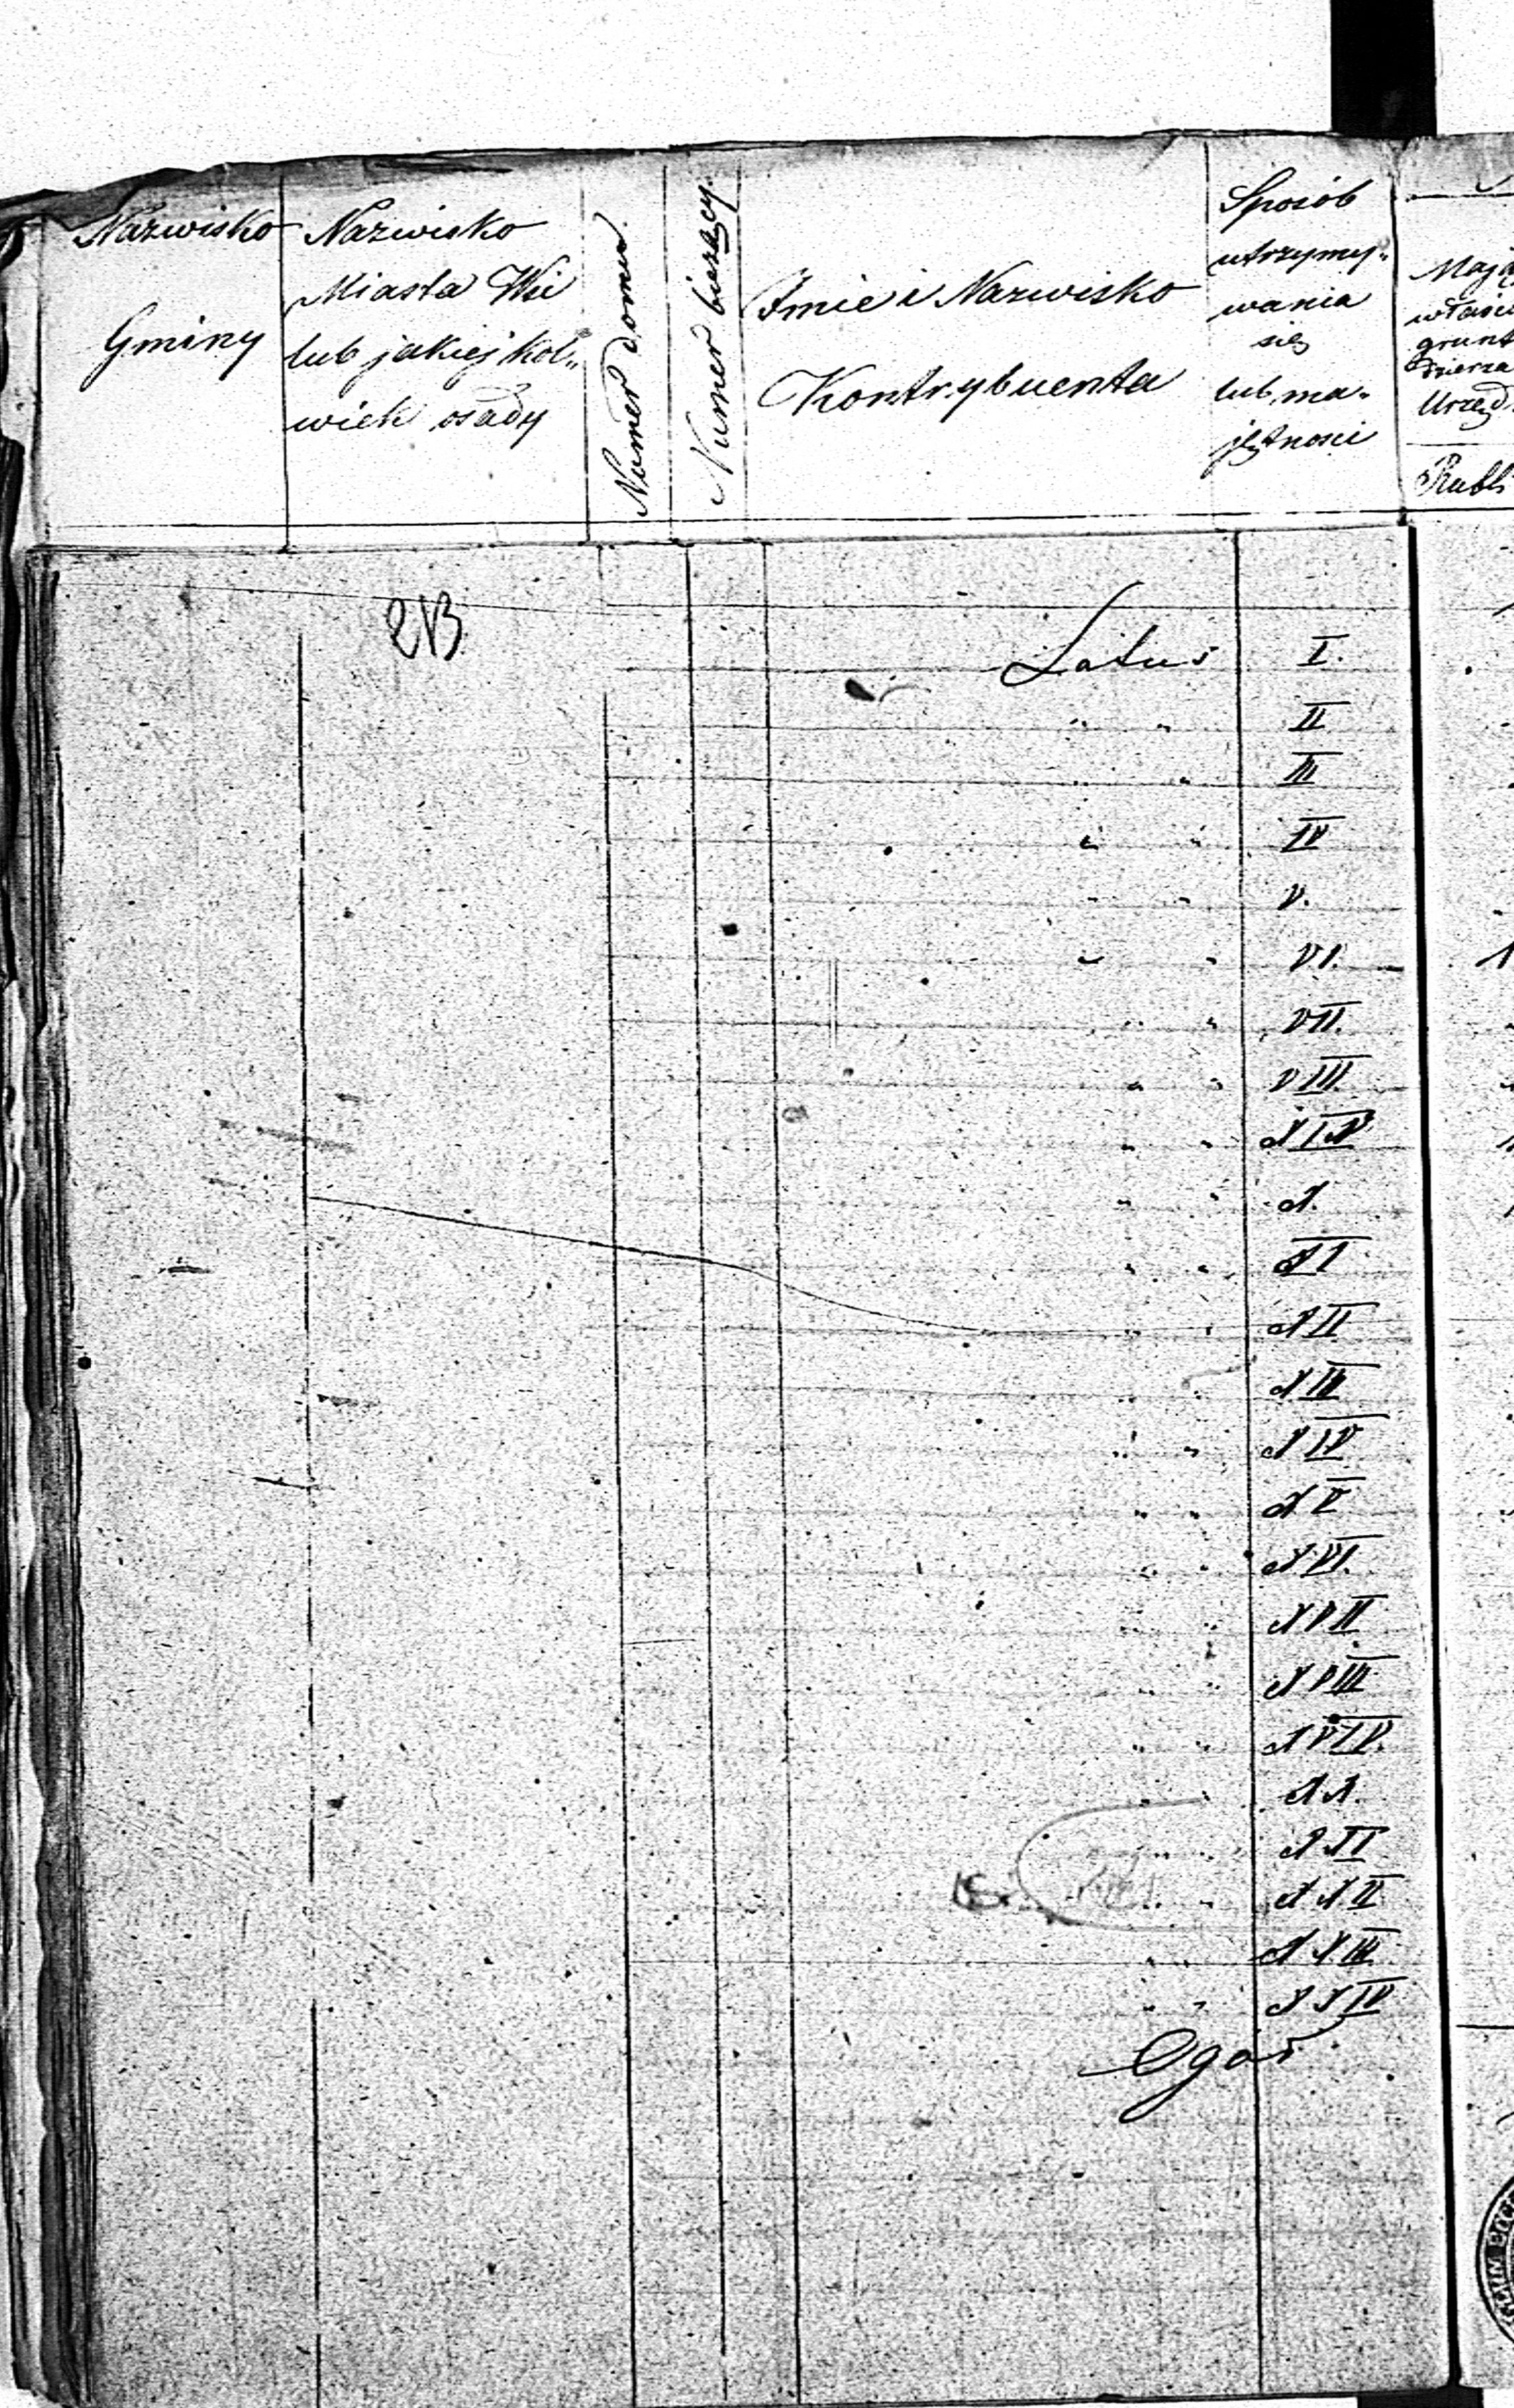 Nazwisko
Gminy
Nazwisko
Miasta Wsi
lub jakiej kol„
wiek osady
Numer domu
Numer bieżący
Imie i Nazwisko
Kontrybuenta
Sposób
utrzymy„
wania
się
lub ma„
jętności
Rubli
213
Latus I.
" " II
" " III
" " IV
" " V.
" " VI.
" " VII.
" " VIII
" " XIV
" " X.
" " XI
" " XII
" " XIII
" " XIV
" " XV
" " XVI.
" " XVII
" " XVIII
" " XVIV.
" " XX.
" " XXI
" " XXII
" " XXIII
" " XXIV
Ogół